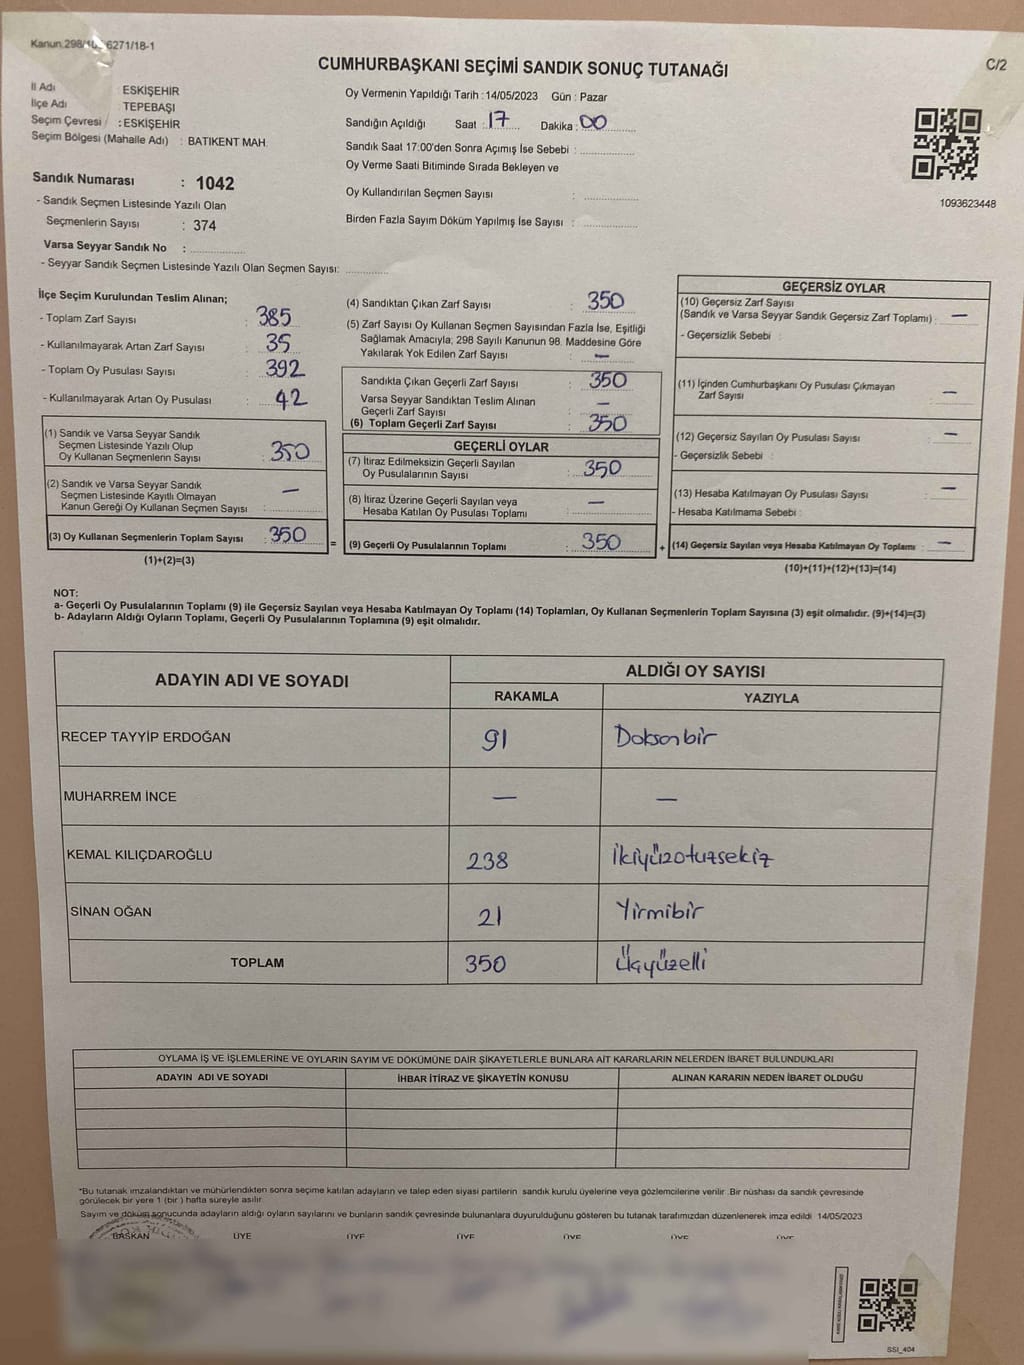 Kanun.298/ 6271/18-1
C/2
CUMHURBAŞKANI SEÇİMİ SANDIK SONUÇ TUTANAĞI
İl Adı : ESKİŞEHİR
İlçe Adı : TEPEBAŞI
Seçim Çevresi : ESKİŞEHİR
Seçim Bölgesi (Mahalle Adı) : BATIKENT MAH.
Sandık Numarası : 1042
- Sandık Seçmen Listesinde Yazılı Olan
Seçmenlerin Sayısı : 374
Varsa Seyyar Sandık No :
- Seyyar Sandık Seçmen Listesinde Yazılı Olan Seçmen Sayısı:
Oy Vermenin Yapıldığı Tarih :14/05/2023 Gün : Pazar
Sandığın Açıldığı Saat : 17 Dakika : 00
Sandık Saat 17:00'den Sonra Açımış İse Sebebi :
Oy Verme Saati Bitiminde Sırada Bekleyen ve
Oy Kullandırılan Seçmen Sayısı :
Birden Fazla Sayım Döküm Yapılmış İse Sayısı :
1093623448
İlçe Seçim Kurulundan Teslim Alınan;
- Toplam Zarf Sayısı : 385
- Kullanılmayarak Artan Zarf Sayısı : 35
- Toplam Oy Pusulası Sayısı : 392
- Kullanılmayarak Artan Oy Pusulası : 42
(1) Sandık ve Varsa Seyyar Sandık
Seçmen Listesinde Yazılı Olup
Oy Kullanan Seçmenlerin Sayısı : 350
(2) Sandık ve Varsa Seyyar Sandık
Seçmen Listesinde Kayıtlı Olmayan
Kanun Gereği Oy Kullanan Seçmen Sayısı : —
(3) Oy Kullanan Seçmenlerin Toplam Sayısı : 350
(1)+(2)=(3)
=
(4) Sandıktan Çıkan Zarf Sayısı : 350
(5) Zarf Sayısı Oy Kullanan Seçmen Sayısından Fazla İse, Eşitliği
Sağlamak Amacıyla; 298 Sayılı Kanunun 98. Maddesine Göre
Yakılarak Yok Edilen Zarf Sayısı : —
Sandıkta Çıkan Geçerli Zarf Sayısı : 350
Varsa Seyyar Sandıktan Teslim Alınan
Geçerli Zarf Sayısı : —
(6) Toplam Geçerli Zarf Sayısı : 350
GEÇERLİ OYLAR
(7) İtiraz Edilmeksizin Geçerli Sayılan
Oy Pusulalarının Sayısı : 350
(8) İtiraz Üzerine Geçerli Sayılan veya
Hesaba Katılan Oy Pusulası Toplamı : —
(9) Geçerli Oy Pusulalarının Toplamı : 350
+
GEÇERSİZ OYLAR
(10) Geçersiz Zarf Sayısı
(Sandık ve Varsa Seyyar Sandık Geçersiz Zarf Toplamı) : —
- Geçersizlik Sebebi :
(11) İçinden Cumhurbaşkanı Oy Pusulası Çıkmayan
Zarf Sayısı : —
(12) Geçersiz Sayılan Oy Pusulası Sayısı : —
- Geçersizlik Sebebi :
(13) Hesaba Katılmayan Oy Pusulası Sayısı : —
- Hesaba Katılmama Sebebi :
(14) Geçersiz Sayılan veya Hesaba Katılmayan Oy Toplamı : —
(10)+(11)+(12)+(13)=(14)
NOT:
a- Geçerli Oy Pusulalarının Toplamı (9) ile Geçersiz Sayılan veya Hesaba Katılmayan Oy Toplamı (14) Toplamları, Oy Kullanan Seçmenlerin Toplam Sayısına (3) eşit olmalıdır. (9)+(14)=(3)
b- Adayların Aldığı Oyların Toplamı, Geçerli Oy Pusulalarının Toplamına (9) eşit olmalıdır.
ADAYIN ADI VE SOYADI ALDIĞI OY SAYISI
RAKAMLA YAZIYLA
RECEP TAYYİP ERDOĞAN 91 Doksanbir
MUHARREM İNCE — —
KEMAL KILIÇDAROĞLU 238 İkiyüzotuzsekiz
SİNAN OĞAN 21 Yirmibir
TOPLAM 350 Üçyüzelli
OYLAMA İŞ VE İŞLEMLERİNE VE OYLARIN SAYIM VE DÖKÜMÜNE DAİR ŞİKAYETLERLE BUNLARA AİT KARARLARIN NELERDEN İBARET BULUNDUKLARI
ADAYIN ADI VE SOYADI İHBAR İTİRAZ VE ŞİKAYETİN KONUSU ALINAN KARARIN NEDEN İBARET OLDUĞU
*Bu tutanak imzalandıktan ve mühürlendikten sonra seçime katılan adayların ve talep eden siyasi partilerin sandık kurulu üyelerine veya gözlemcilerine verilir .Bir nüshası da sandık çevresinde
görülecek bir yere 1 (bir ) hafta süreyle asılır.
Sayım ve döküm sonucunda adayların aldığı oyların sayılarını ve bunların sandık çevresinde bulunanlara duyurulduğunu gösteren bu tutanak tarafımızdan düzenlenerek imza edildi 14/05/2023
BAŞKAN ÜYE ÜYE ÜYE ÜYE ÜYE ÜYE
SSI_404